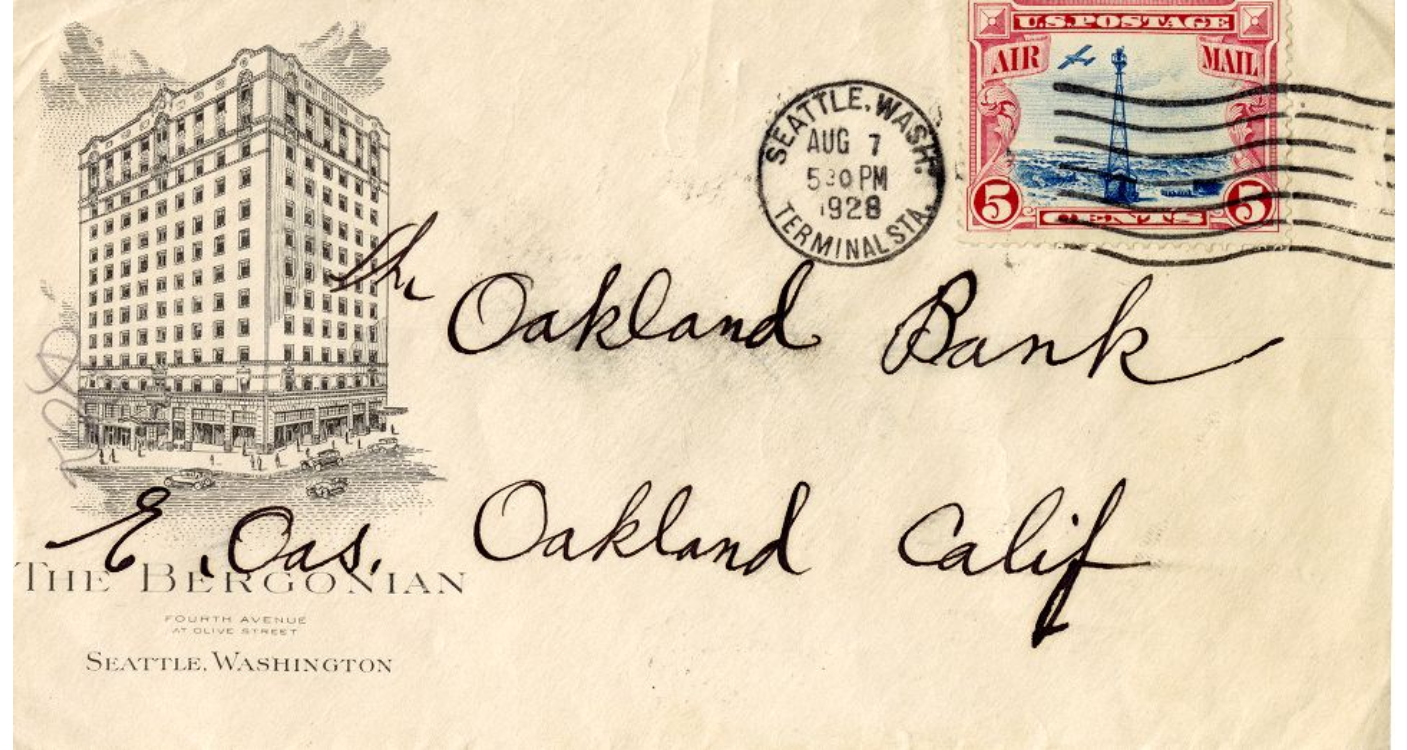 U.S.POSTAGE
AIR MAIL
5 CENTS 5
SEATTLE, WASH.
AUG 7
530 PM
1928
TERMINAL STA.
The Oakland Bank
E. Oas. Oakland Calif
THE BERGONIAN
FOURTH AVENUE
AT OLIVE STREET
SEATTLE, WASHINGTON